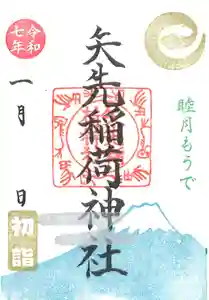 矢先稲荷神社
睦月もうで
令和
七年
一月 日
初詣